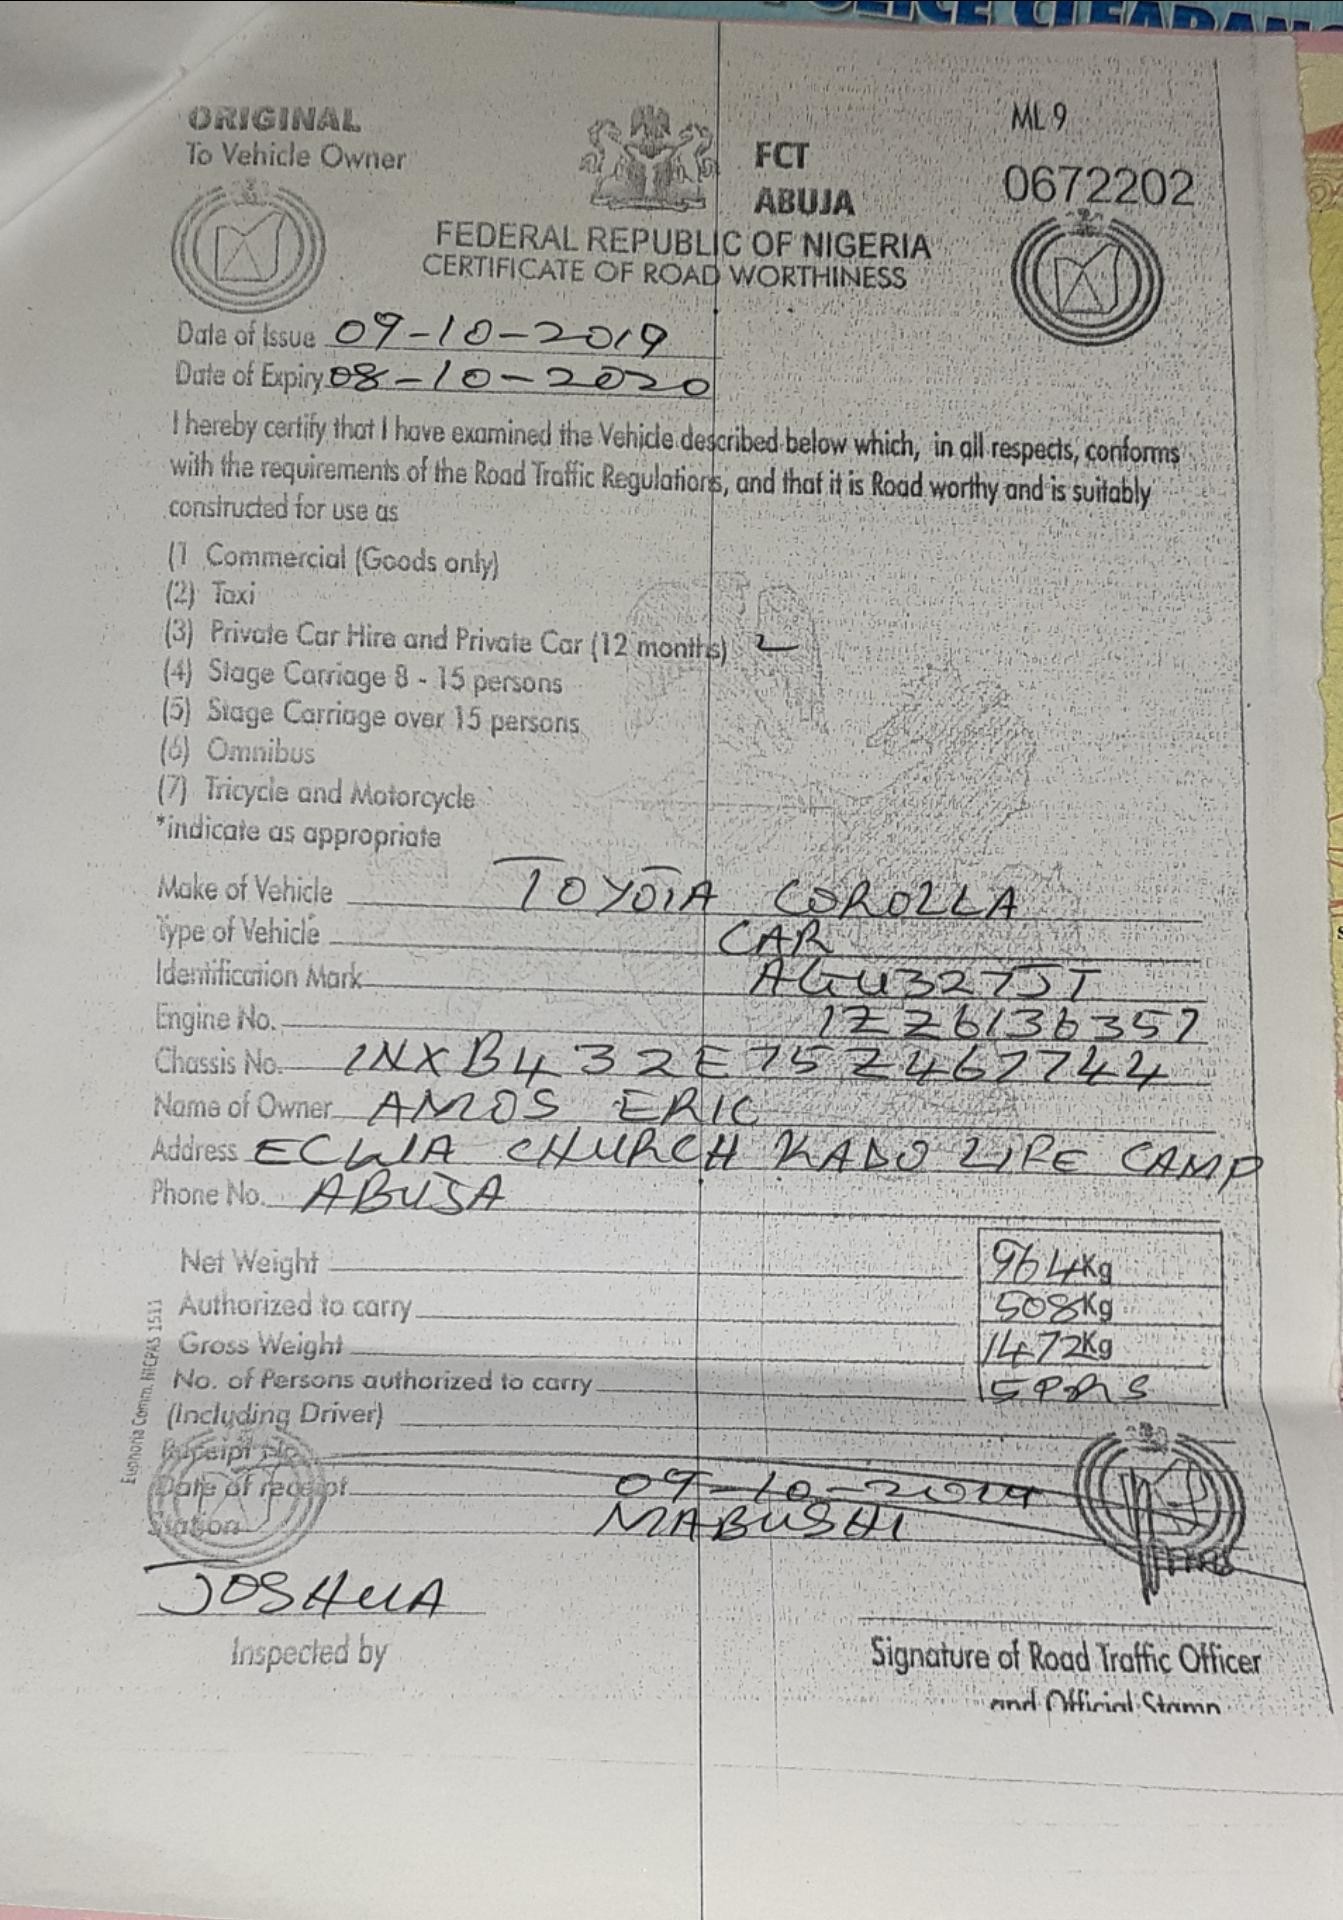 POLICE CLEARANC
ORIGINAL
To Vehicle Owner
FCT
ABUJA
ML 9
0672202
FEDERAL REPUBLIC OF NIGERIA
CERTIFICATE OF ROAD WORTHINESS
Date of Issue 09-10-2019
Date of Expiry 08-10-2020
I hereby certify that I have examined the Vehicle described below which, in all respects, conforms
with the requirements of the Road Traffic Regulations, and that it is Road worthy and is suitably
constructed for use as
(1 Commercial (Goods only)
(2) Taxi
(3) Private Car Hire and Private Car (12 months)
(4) Stage Carriage 8 - 15 persons
(5) Stage Carriage over 15 persons
(6) Omnibus
(7) Tricycle and Motorcycle
*indicate as appropriate
Make of Vehicle TOYOTA COROLLA
Type of Vehicle CAR
Identification Mark AGU327JT
Engine No. 1ZZ6136357
Chassis No. 1NXB432E75Z467744
Name of Owner AMOS ERIC
Address ECWA CHURCH KADO LIFE CAMP
Phone No. ABUJA
Net Weight 964Kg
Authorized to carry 508Kg
Gross Weight 1472Kg
No. of Persons authorized to carry 5PRS
(Including Driver)
Receipt No.
Date of receipt 09-10-2019
Station MABUSHI
JOSHUA
Inspected by
Signature of Road Traffic Officer
and Official Stamp
Euphoria Comm. NICPAS 1511